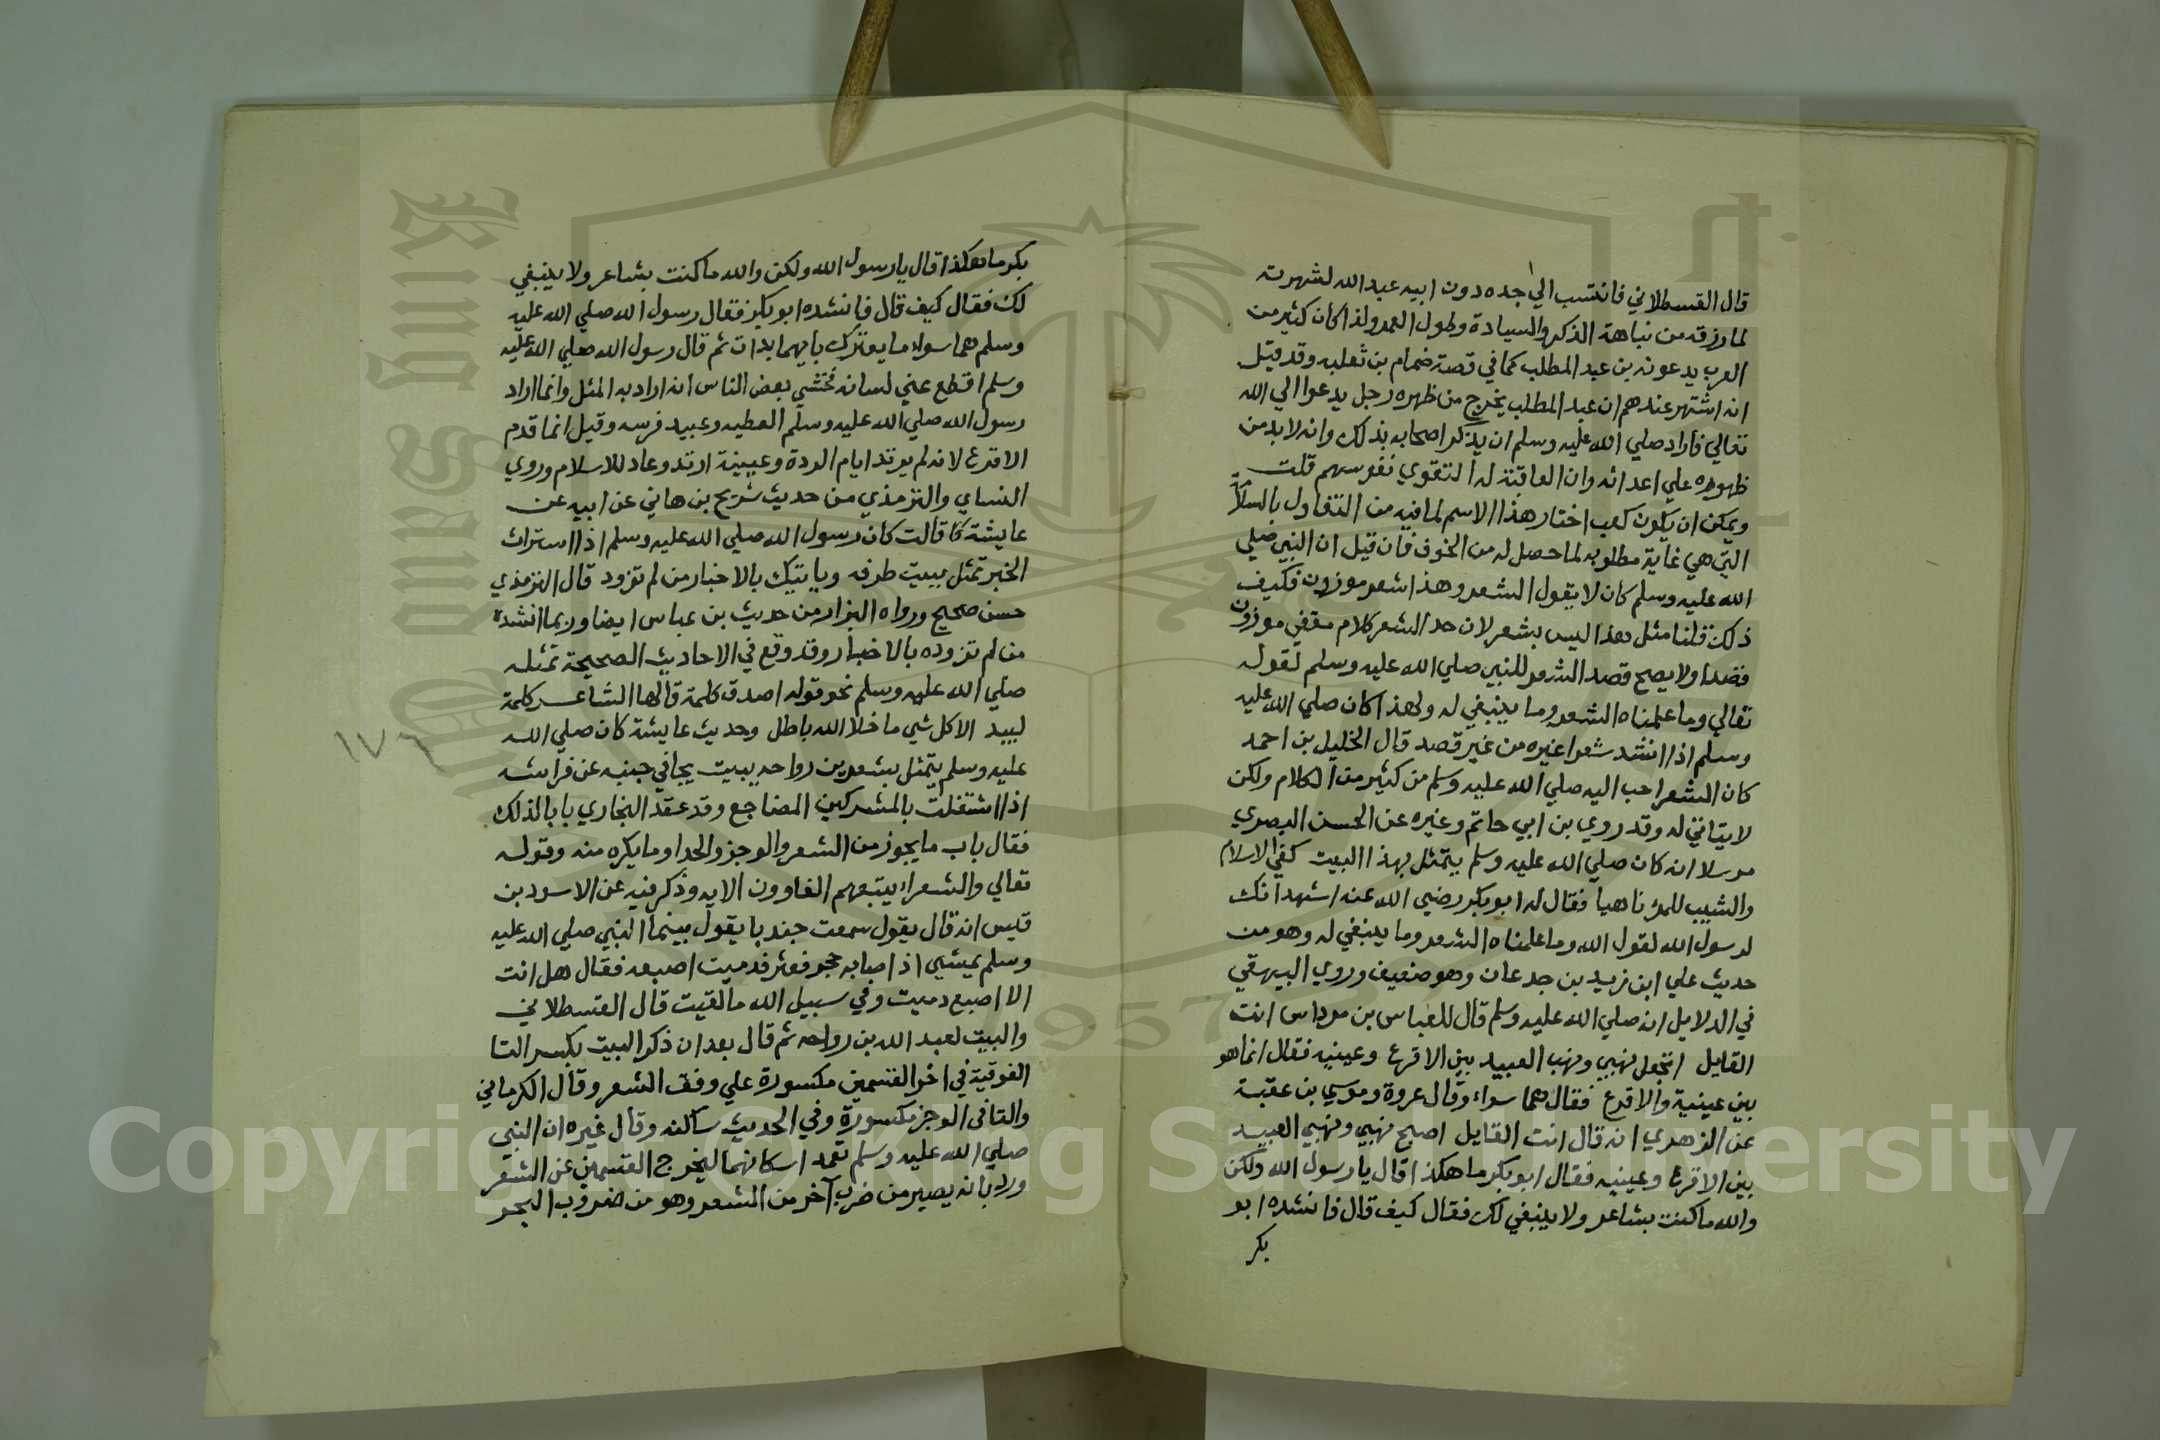 قال القسطلاني فانتسب الي جده دون ابيه عبد الله لشهرت
لما رزقه من نباهة الذكر والسيادة وطول العمر ولذا كان كثير من
العرب يدعونه بن عبد المطلب كما في قصة ضمام بن ثعلبه وقد قيل
انه اشتهر عندهم ان عبد المطلب يخرج من ظهره رجل يدعوا الي الله
تعالي فاراد صلي الله عليه وسلم ان يذكر اصحابه بذلك وانه لا بد من
ظهوره علي اعدائه وان العاقبة له لتقوي نفوسهم قلت
ويمكن ان يكون كعب اختار هذا الاسم لما فيه من التفاول بالسلامة
التي هي غاية مطلوبه لما حصل له من الخوف فان قيل ان النبي صلي
الله عليه وسلم كان لا يقول الشعر وهذا شعر موزون فكيف
ذلك قلنا مثل هذا ليس بشعر لان حد الشعر كلام مقفي موزون
قصدا ولا يصح قصد الشعر للنبي صلي الله عليه وسلم لقوله
تعالي وما علمناه الشعر وما ينبغي له ولهذا كان صلي الله عليه
وسلم اذا انشد شعرا غيره من غير قصد قال الخليل بن احمد
كان الشعر احب اليه صلي الله عليه وسلم من كثير من الكلام ولكن
لا يتاتي له وقد روي بن ابي حاتم وغيره عن الحسن البصري
مرسلا انه كان صلي الله عليه وسلم يتمثل بهذا البيت كفي الاسلام
والشيب للمرء ناهيا فقال له ابو بكر رضي الله عنه اشهد انك
لرسول الله لقول الله وما علمناه الشعر وما ينبغي له وهو من
حديث علي ابن زيد بن جدعان وهو ضعيف وروي البيهقي
في الدلايل انه صلي الله عليه وسلم قال للعباس بن مرداس انت
القايل اتجعل نهبي ونهب العبيد بين الاقرع وعيينه فقال انما هو
بين عيينة والاقرع فقال هما سواء وقال عروة وموسي بن عقبة
عن الزهري انه قال انت القايل اصبح نهبي ونهب العبيد
بين الاقرع وعيينه فقال ابو بكر ما هكذا قال يا رسول الله ولكن
والله ما كنت بشاعر ولا ينبغي لك فقال كيف قال فانشده ابو
بكر
بكر ما هكذا قال يا رسول الله ولكن والله ما كنت بشاعر ولا ينبغي
لك فقال كيف قال فانشده ابو بكر فقال رسول الله صلي الله عليه
وسلم هما سواء ما يضرك بايهما بدات ثم قال رسول الله صلي الله عليه
وسلم اقطع عني لسانه فخشي بعض الناس انه اراد به المثل وانما اراد
رسول الله صلي الله عليه وسلم العطيه وعبيد فرسه وقيل انما قدم
الاقرع لانه لم يرتد ايام الردة وعيينة ارتد وعاد للاسلام وروي
النساي والترمذي من حديث شريح بن هاني عن ابيه عن
عايشة قالت كان رسول الله صلي الله عليه وسلم اذا استراث
الخبر تمثل ببيت طرفه وياتيك بالاخبار من لم تزود قال الترمذي
حسن صحيح ورواه البزار من حديث بن عباس ايضا وربما انشده
من لم تزوده بالاخبار وقد وقع في الاحاديث الصحيحة تمثله
صلي الله عليه وسلم نحو قوله اصدق كلمة قالها الشاعر كلمة
لبيد الا كل شي ما خلا الله باطل وحديث عايشة كان صلي الله
عليه وسلم يتمثل بشعر بن رواحه ببيت يجافي جنبه عن فراشه
اذا اشتغلت بالمشركين المضاجع وقد عقد البخاري بابا لذلك
فقال باب ما يجوز من الشعر والرجز والحدا وما يكره منه وقوله
تعالي والشعراء يتبعهم الغاوون الايه وذكر فيه عن الاسود بن
قيس انه قال يقول سمعت جندبا يقول بينما النبي صلي الله عليه
وسلم يمشي اذ اصابه حجر فعثر فدميت اصبعه فقال هل انت
الا اصبع دميت وفي سبيل الله ما لقيت قال القسطلاني
والبيت لعبد الله بن رواحه ثم قال بعد ان ذكر البيت بكسر التا
الفوقية في اخر القسمين مكسورة علي وفق الشعر وقال الكرماني
والتا في الرجز مكسورة وفي الحديث ساكنه وقال غيره ان النبي
صلي الله عليه وسلم تعمد اسكانهما ليخرج القسمين عن الشعر
ورد بانه يصير من ضرب آخر من الشعر وهو من ضروب البحر
١٧٦
King Saud University
1957
Copyright © King Saud University